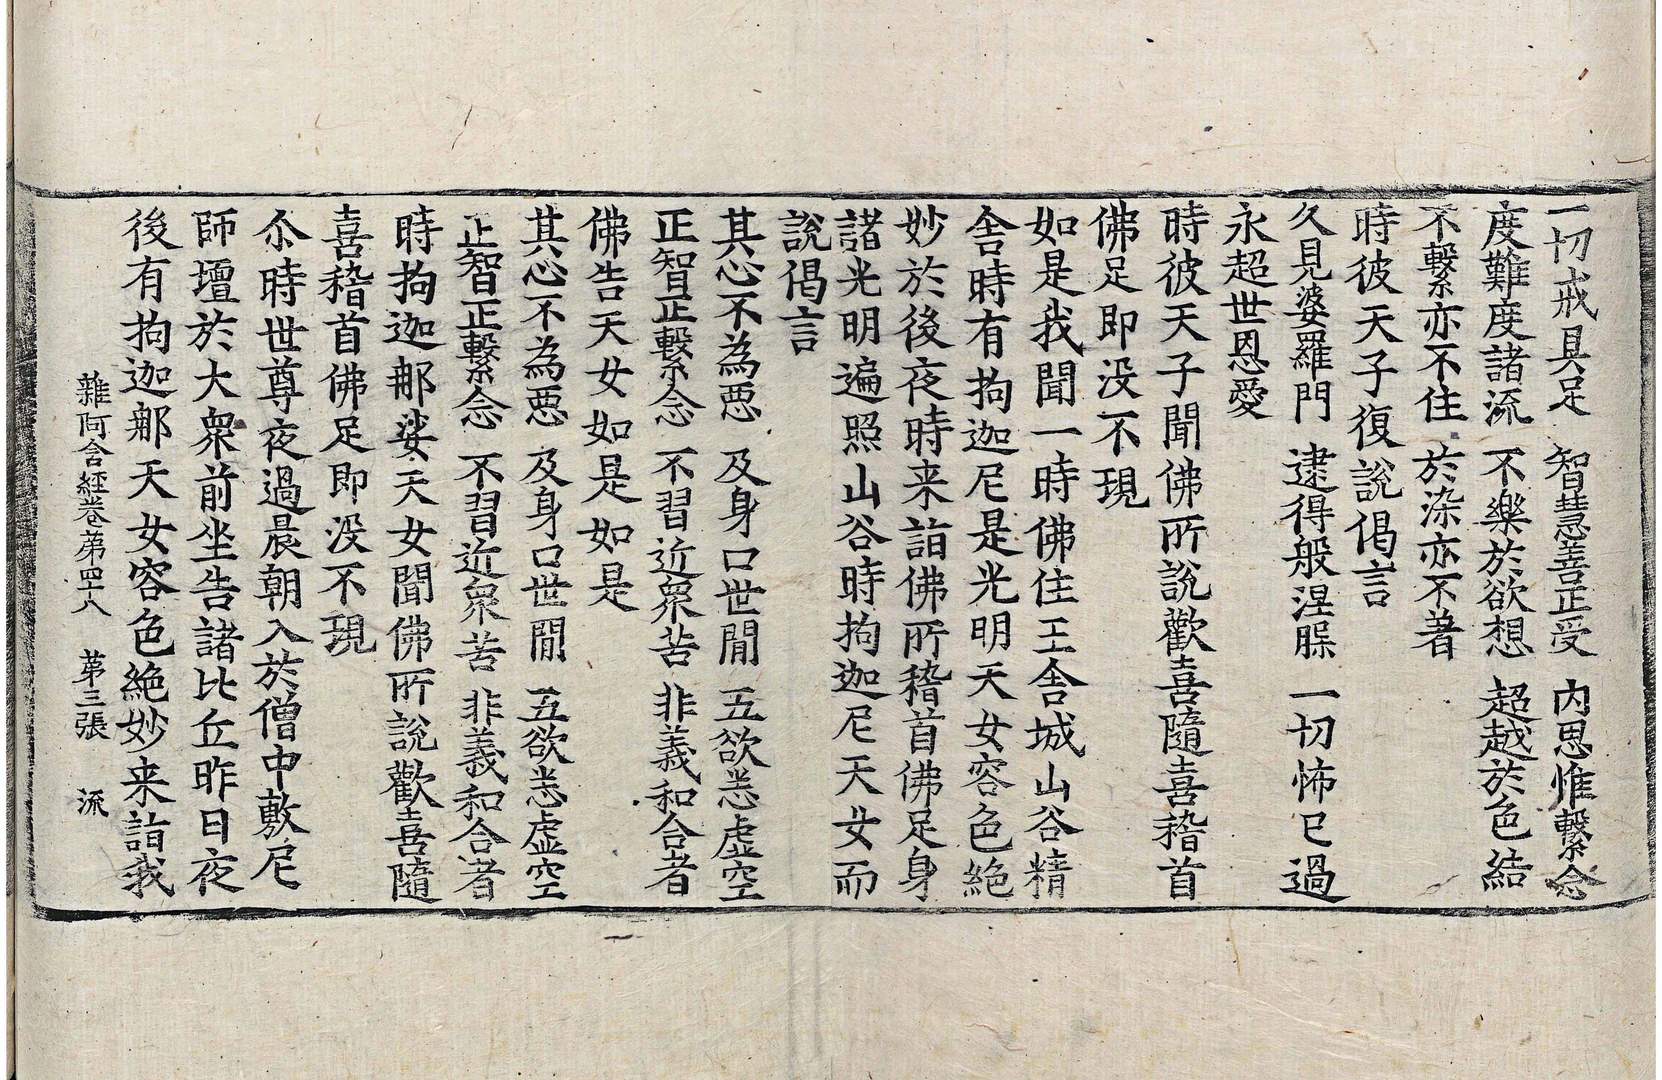 一切戒具足　智慧善正受　內思惟繫念
度難度諸流　不樂於欲想　超越於色結
不繫亦不住　於染亦不著
時彼天子復說偈言
久見婆羅門　逮得般涅槃　一切怖已過
永超世恩愛
時彼天子聞佛所說歡喜隨喜稽首
佛足即没不現
如是我聞一時佛住王舍城山谷精
舍時有拘迦尼是光明天女容色絶
妙於後夜時来詣佛所稽首佛足身
諸光明遍照山谷時拘迦尼天女而
說偈言
其心不為惡　及身口世間　五欲悉虛空
正智正繫念　不習近衆苦　非義和合者
佛告天女如是如是
其心不為惡　及身口世間　五欲悉虛空
正智正繫念　不習近衆苦　非義和合者
時拘迦那娑天女聞佛所說歡喜隨
喜稽首佛足即没不現
尒時世尊夜過晨朝入於僧中敷尼
師壇於大衆前坐告諸比丘昨日夜
後有拘迦那天女容色絶妙来詣我
雜阿含經卷第四十八　第三張　流